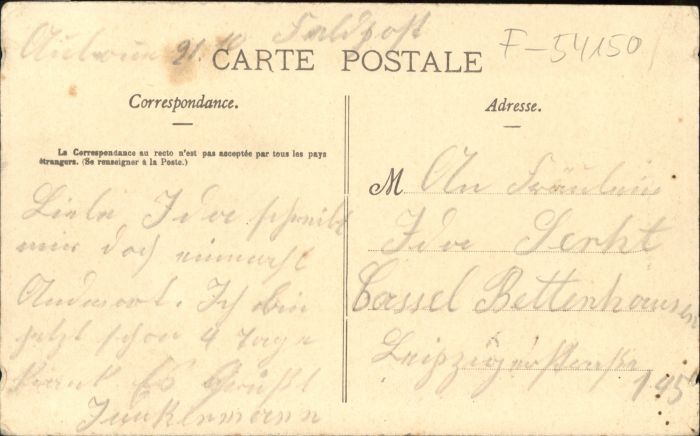 Feldpost
F-54150
CARTE POSTALE
Correspondance.
Adresse.
La Correspondance au recto n'est pas acceptée par tous les pays
étrangers. (Se renseigner à la Poste.)
Liebe Ida schreibt
mir doch einmahl
Andwort. Ich bin
jetzt schon 4 Tage
krank Es Grüßt
M An Fräulein
Ida
Cassel Bettenhausen
Leipzigerstraße
195